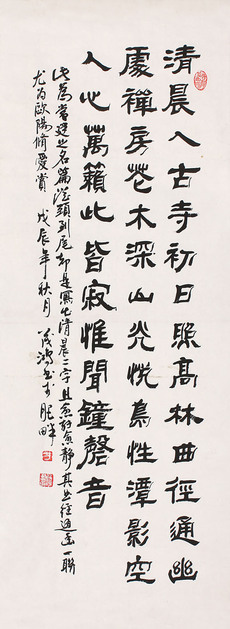 清晨入古寺初日照高林曲径通幽
處禪房花木深山光悦鳥性潭影空
人心萬籟此皆寂惟聞鐘磬音
此為常建之名篇從頭到尾却是寫此清晨二字且愈静其曲徑通幽一聯
尤为歐陽脩愛賞 戊辰年秋月